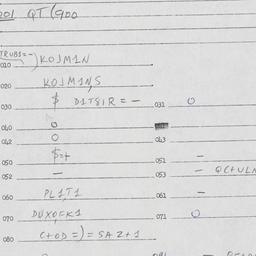 201 QT(900
TRUBS=-
010 KOJM1N
020 KOJM1NS
030 $ D1TSIR=- 031 0
040 0
042 0 043
050 $=+ 051 -
052 - 053 -
060 PL1T1 061 -
070 DUXOCK1 071 0
080 C+OD=)=5AZ+1